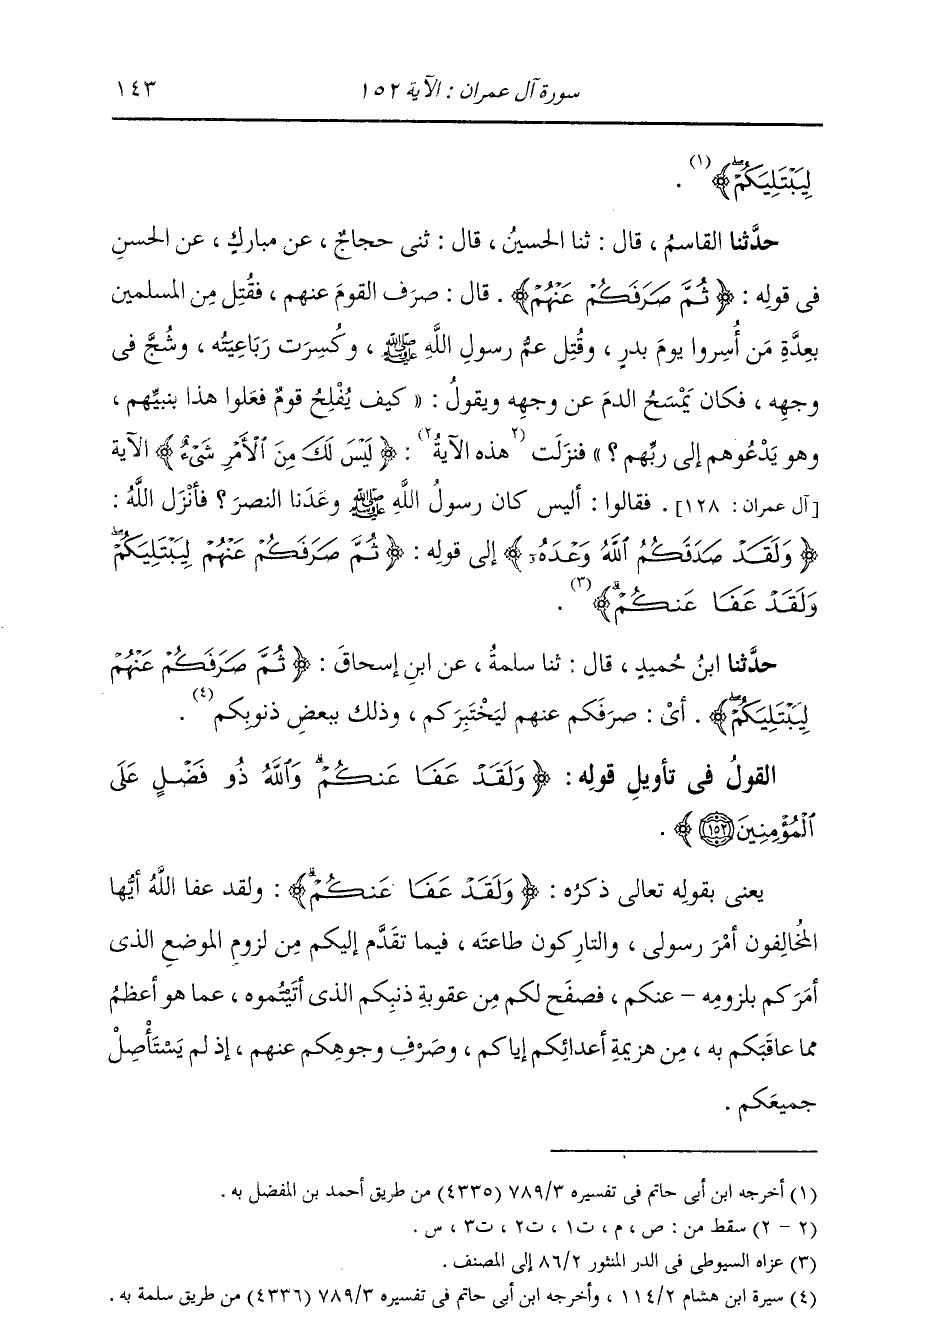 سورة آل عمران : الآية ١٥٢ ١٤٣
لِيَبْتَلِيَكُمْ ﴾(١) .
حدَّثنا القاسمُ ، قال : ثنا الحسينُ ، قال : ثنى حجاجٌ ، عن مباركٍ ، عن الحسنِ
فى قولِه : ﴿ ثُمَّ صَرَفَكُمْ عَنْهُمْ ﴾ . قال : صرَف القومَ عنهم ، فقُتِل مِن المسلمين
بعِدَّةِ مَن أُسِروا يومَ بدرٍ ، وقُتِل عمُّ رسولِ اللَّهِ ﷺ ، وكُسِرَت رَبَاعِيَتُه ، وشُجَّ فى
وجهِه ، فكان يَمْسَحُ الدمَ عن وجهِه ويقولُ : « كيف يُفْلِحُ قومٌ فعَلوا هذا بنبيِّهم ،
وهو يَدْعُوهم إلى ربِّهم ؟ » فنزَلَت (٢هذه الآيةُ٢) : ﴿ لَيْسَ لَكَ مِنَ ٱلْأَمْرِ شَىْءٌ ﴾ الآية
[آل عمران : ١٢٨] . فقالوا : أليس كان رسولُ اللَّهِ ﷺ وعَدَنا النصرَ ؟ فأنْزَل اللَّهُ :
﴿ وَلَقَدْ صَدَقَكُمُ ٱللَّهُ وَعْدَهُۥٓ ﴾ إلى قولِه : ﴿ ثُمَّ صَرَفَكُمْ عَنْهُمْ لِيَبْتَلِيَكُمْ ۖ
وَلَقَدْ عَفَا عَنكُمْ ۗ ﴾(٣) .
حدَّثنا ابنُ حُميدٍ ، قال : ثنا سلمةُ ، عن ابنِ إسحاقَ : ﴿ ثُمَّ صَرَفَكُمْ عَنْهُمْ
لِيَبْتَلِيَكُمْ ۖ ﴾ . أىْ : صرَفَكم عنهم ليَخْتَبِرَكم ، وذلك ببعضِ ذنوبِكم(٤) .
القولُ فى تأويلِ قولِه : ﴿ وَلَقَدْ عَفَا عَنكُمْ ۗ وَٱللَّهُ ذُو فَضْلٍ عَلَى
ٱلْمُؤْمِنِينَ ١٥٢ ﴾ .
يعنى بقولِه تعالى ذكرُه : ﴿ وَلَقَدْ عَفَا عَنكُمْ ۗ ﴾ : ولقد عفا اللَّهُ أيُّها
المُخالِفون أمْرَ رسولى ، والتاركون طاعتَه ، فيما تقَدَّم إليكم مِن لزومِ الموضعِ الذى
أمَرَكم بلزومِه - عنكم ، فصفَح لكم مِن عقوبةِ ذنبِكم الذى أتَيْتُموه ، عما هو أعظمُ
مما عاقَبَكم به ، مِن هزيمةِ أعدائِكم إياكم ، وصَرْفِ وجوهِكم عنهم ، إذ لم يَسْتَأْصِلْ
جميعَكم .
(١) أخرجه ابن أبى حاتم فى تفسيره ٧٨٩/٣ (٤٣٣٥) من طريق أحمد بن المفضل به .
(٢ - ٢) سقط من : ص ، م ، ت١ ، ت٢ ، ت٣ ، س .
(٣) عزاه السيوطى فى الدر المنثور ٨٦/٢ إلى المصنف .
(٤) سيرة ابن هشام ١١٤/٢ ، وأخرجه ابن أبى حاتم فى تفسيره ٧٨٩/٣ (٤٣٣٦) من طريق سلمة به .